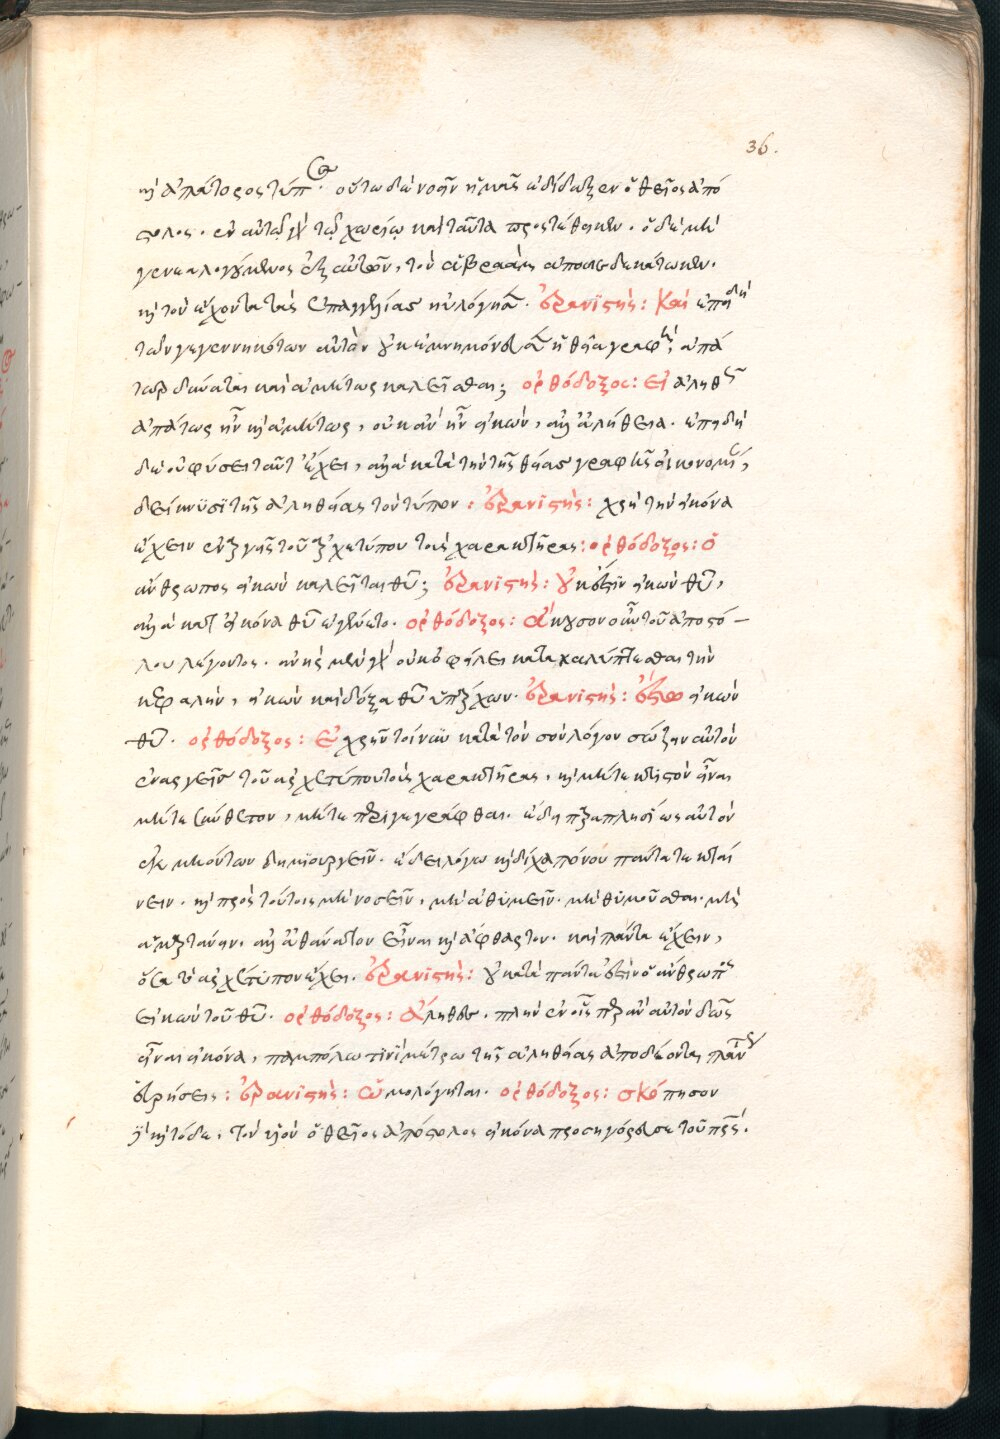 36.
καὶ ἀπάτορος τύπος. οὕτω δὲ νοεῖν ἡμᾶς ἐδίδαξεν ὁ θεῖος ἀπό
στολος. ἐν αὐτῷ γὰρ τῷ χωρίῳ καὶ ταῦτα προστέθεικεν. ὁ δὲ μὴ
γενεαλογούμενος ἐξ αὐτῶν, τὸν ἀβραὰμ ἀποδεδεκάτωκεν.
καὶ τὸν ἔχοντα τὰς ἐπαγγελίας εὐλόγησεν. ἐρανιστής: Καὶ ἐπειδὴ
τῶν γεγεννηκότων αὐτὸν οὐκ ἐμνημόνευσεν ἡ θεία γραφή, ἀπά
τωρ δύναται καὶ ἀμήτωρ καλεῖσθαι; ὀρθόδοξος: Εἰ ἀληθῶς
ἀπάτωρ ἦν καὶ ἀμήτωρ, οὐκ ἂν ἦν εἰκὼν, ἀλλ' ἀλήθεια. ἐπειδὴ
δὲ οὐ φύσει ταῦτ' ἔχει, ἀλλὰ κατὰ τὴν τῆς θείας γραφῆς οἰκονομίαν,
δείκνυσι τῆς ἀληθείας τὸν τύπον: ἐρανιστής: χρὴ τὴν εἰκόνα
ἔχειν ἐναργεῖς τοῦ ἀρχετύπου τοὺς χαρακτῆρας: ὀρθόδοξος: ὁ
ἄνθρωπος εἰκὼν καλεῖται θῦ; ἐρανιστής: οὐκ ἔστιν εἰκὼν θῦ,
ἀλλὰ κατ' εἰκόνα θῦ ἐγένετο. ὀρθόδοξος: ἄκουσον οὖν τοῦ ἀποστό-
λου λέγοντος. ἀνὴρ μὲν γὰρ οὐκ ὀφείλει κατακαλύπτεσθαι τὴν
κεφαλὴν, εἰκὼν καὶ δόξα θῦ ὑπάρχων. ἐρανιστής: ἔστω εἰκὼν
θῦ. ὀρθόδοξος: Ἐχρῆν τοίνυν κατὰ τὸν σὸν λόγον σώζειν αὐτὸν
ἐναργεῖς τοῦ ἀρχετύπου τοὺς χαρακτῆρας, καὶ μήτε κτιστὸν εἶναι
μήτε σύνθετον, μήτε περιγεγράφθαι. ἔδει παραπλησίως αὐτὸν
ἐκ μὴ ὄντων δημιουργεῖν. ἔδει λόγω καὶ δίχα πόνου πάντα τεκταί
νειν. καὶ πρὸς τούτοις μὴ νοσεῖν, μὴ ἀθυμεῖν. μὴ θυμοῦσθαι. μὴ
ἁμαρτάνειν. ἀλλ' ἀθάνατον εἶναι καὶ ἄφθαρτον. καὶ πάντα ἔχειν,
ὅσα τὸ ἀρχέτυπον ἔχει. ἐρανιστής: οὐ κατὰ πάντα ἐστὶν ὁ ἄνθρωπος
εἰκὼν τοῦ θῦ. ὀρθόδοξος: ἀληθῶς. πλὴν ἐν οἷς περ ἂν αὐτὸν δῶς
εἶναι εἰκόνα, παμπόλλω τινὶ μέτρω τῆς ἀληθείας ἀποδέοντα πάντως
εὑρήσεις: ἐρανιστής: ὡμολόγηται. ὀρθόδοξος: σκόπησον
δὴ καὶ τόδε. τὸν υἱὸν ὁ θεῖος ἀπόστολος εἰκόνα προσηγόρευσε τοῦ πρς.